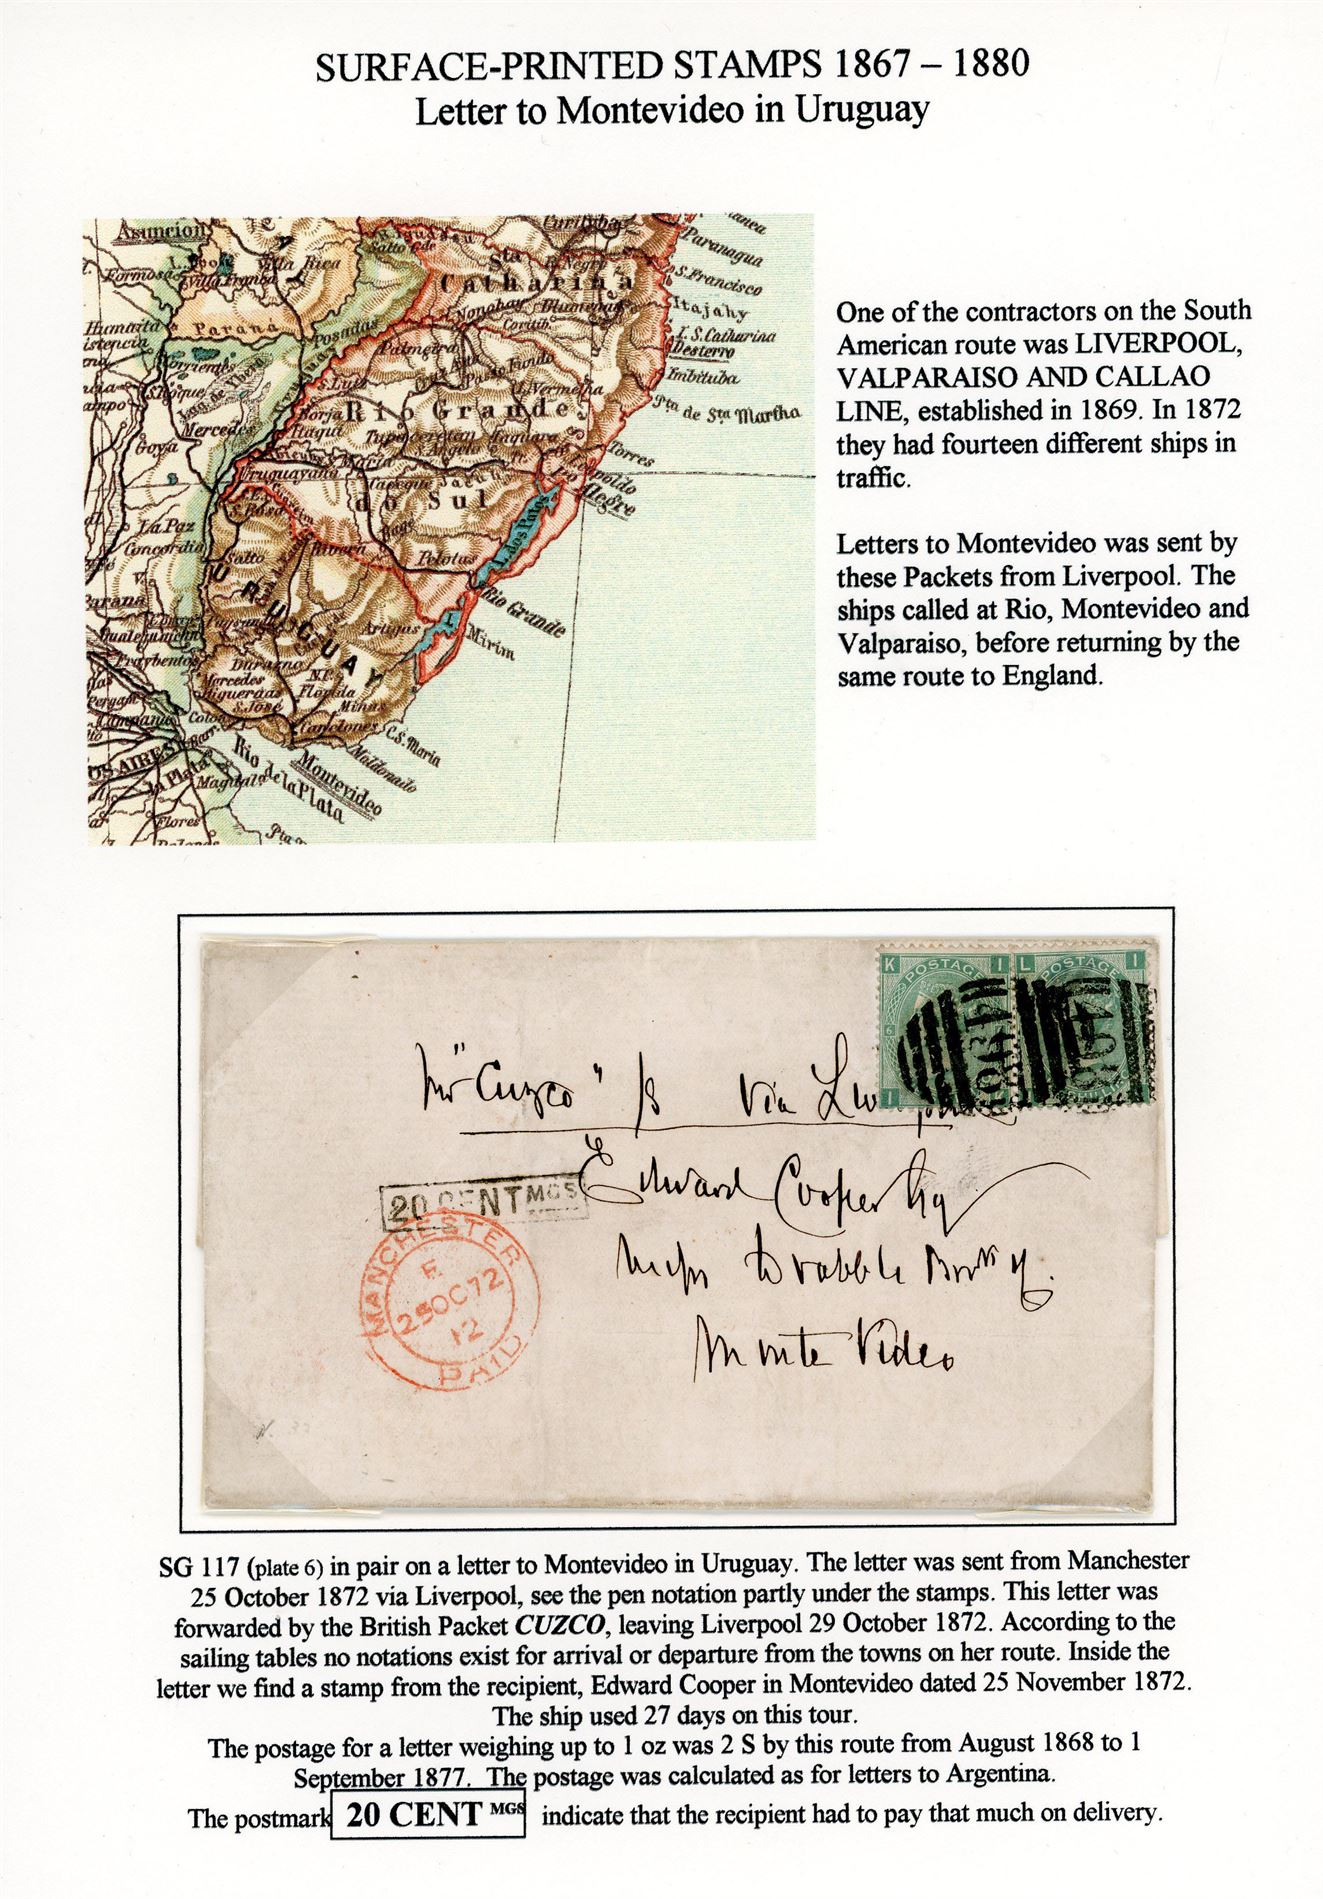 SURFACE-PRINTED STAMPS 1867 – 1880
Letter to Montevideo in Uruguay
Asuncion
Formosa
Villa Rica
Villa Franca
Paraná
Posadas
Humaita
Corrientes
S. Roque
Mercedes
Goya
La Paz
Concordia
Curityba
Paranagua
S. Francisco
Itajahy
I. S. Catharina
Desterro
Imbituba
Pta de Sta Martha
Torres
Sta
Catharina
Nonohay
Blumenau
Palmeira
Passo Fundo
Vermelha
S. Luiz
Borja
Itaqui
Rio Grande
do Sul
Uruguayana
Cacequi
S. Leopoldo
Alegre
L. dos Patos
Bage
Pelotas
Rio Grande
S. Rosa
Rivera
Salto
URUGUAY
Artigas
L. Mirim
Fraybentos
Durazno
Mercedes
Florida
S. José
Minas
Canelones
C. S. Maria
Maldonado
Montevideo
Rio de la Plata
OS AIRES
la Plata
Flores
One of the contractors on the South
American route was LIVERPOOL,
VALPARAISO AND CALLAO
LINE, established in 1869. In 1872
they had fourteen different ships in
traffic.
Letters to Montevideo was sent by
these Packets from Liverpool. The
ships called at Rio, Montevideo and
Valparaiso, before returning by the
same route to England.
K I L I
POSTAGE POSTAGE
6
I
498 498
"Cuzco" via
Edward Cooper Esq
Drabble
Monte Video
20 CENTMGS
MANCHESTER
E
25OC72
12
PAID
SG 117 (plate 6) in pair on a letter to Montevideo in Uruguay. The letter was sent from Manchester
25 October 1872 via Liverpool, see the pen notation partly under the stamps. This letter was
forwarded by the British Packet CUZCO, leaving Liverpool 29 October 1872. According to the
sailing tables no notations exist for arrival or departure from the towns on her route. Inside the
letter we find a stamp from the recipient, Edward Cooper in Montevideo dated 25 November 1872.
The ship used 27 days on this tour.
The postage for a letter weighing up to 1 oz was 2 S by this route from August 1868 to 1
September 1877. The postage was calculated as for letters to Argentina.
The postmark 20 CENT MGS indicate that the recipient had to pay that much on delivery.